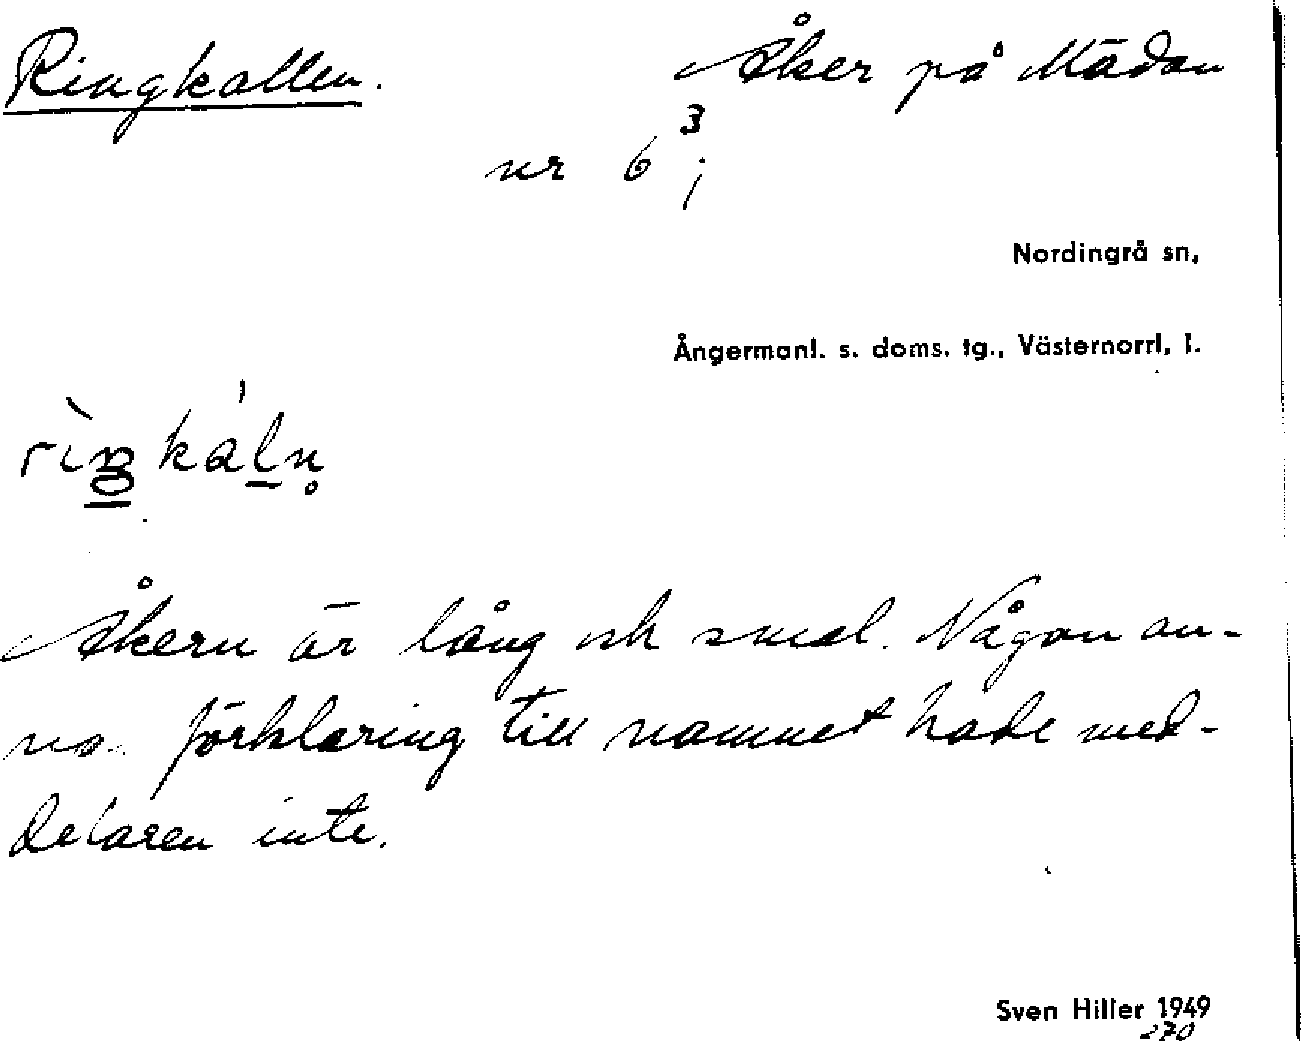 Ringkallen. Åker på Mädan
nr 6³;
Nordingrå sn,
Ångermanl. s. doms. tg., Västernorrl, l.
Åkern är lång och smal. Någon an-
na förklaring till namnet hade med-
delaren inte.
Sven Hiller 1949
270